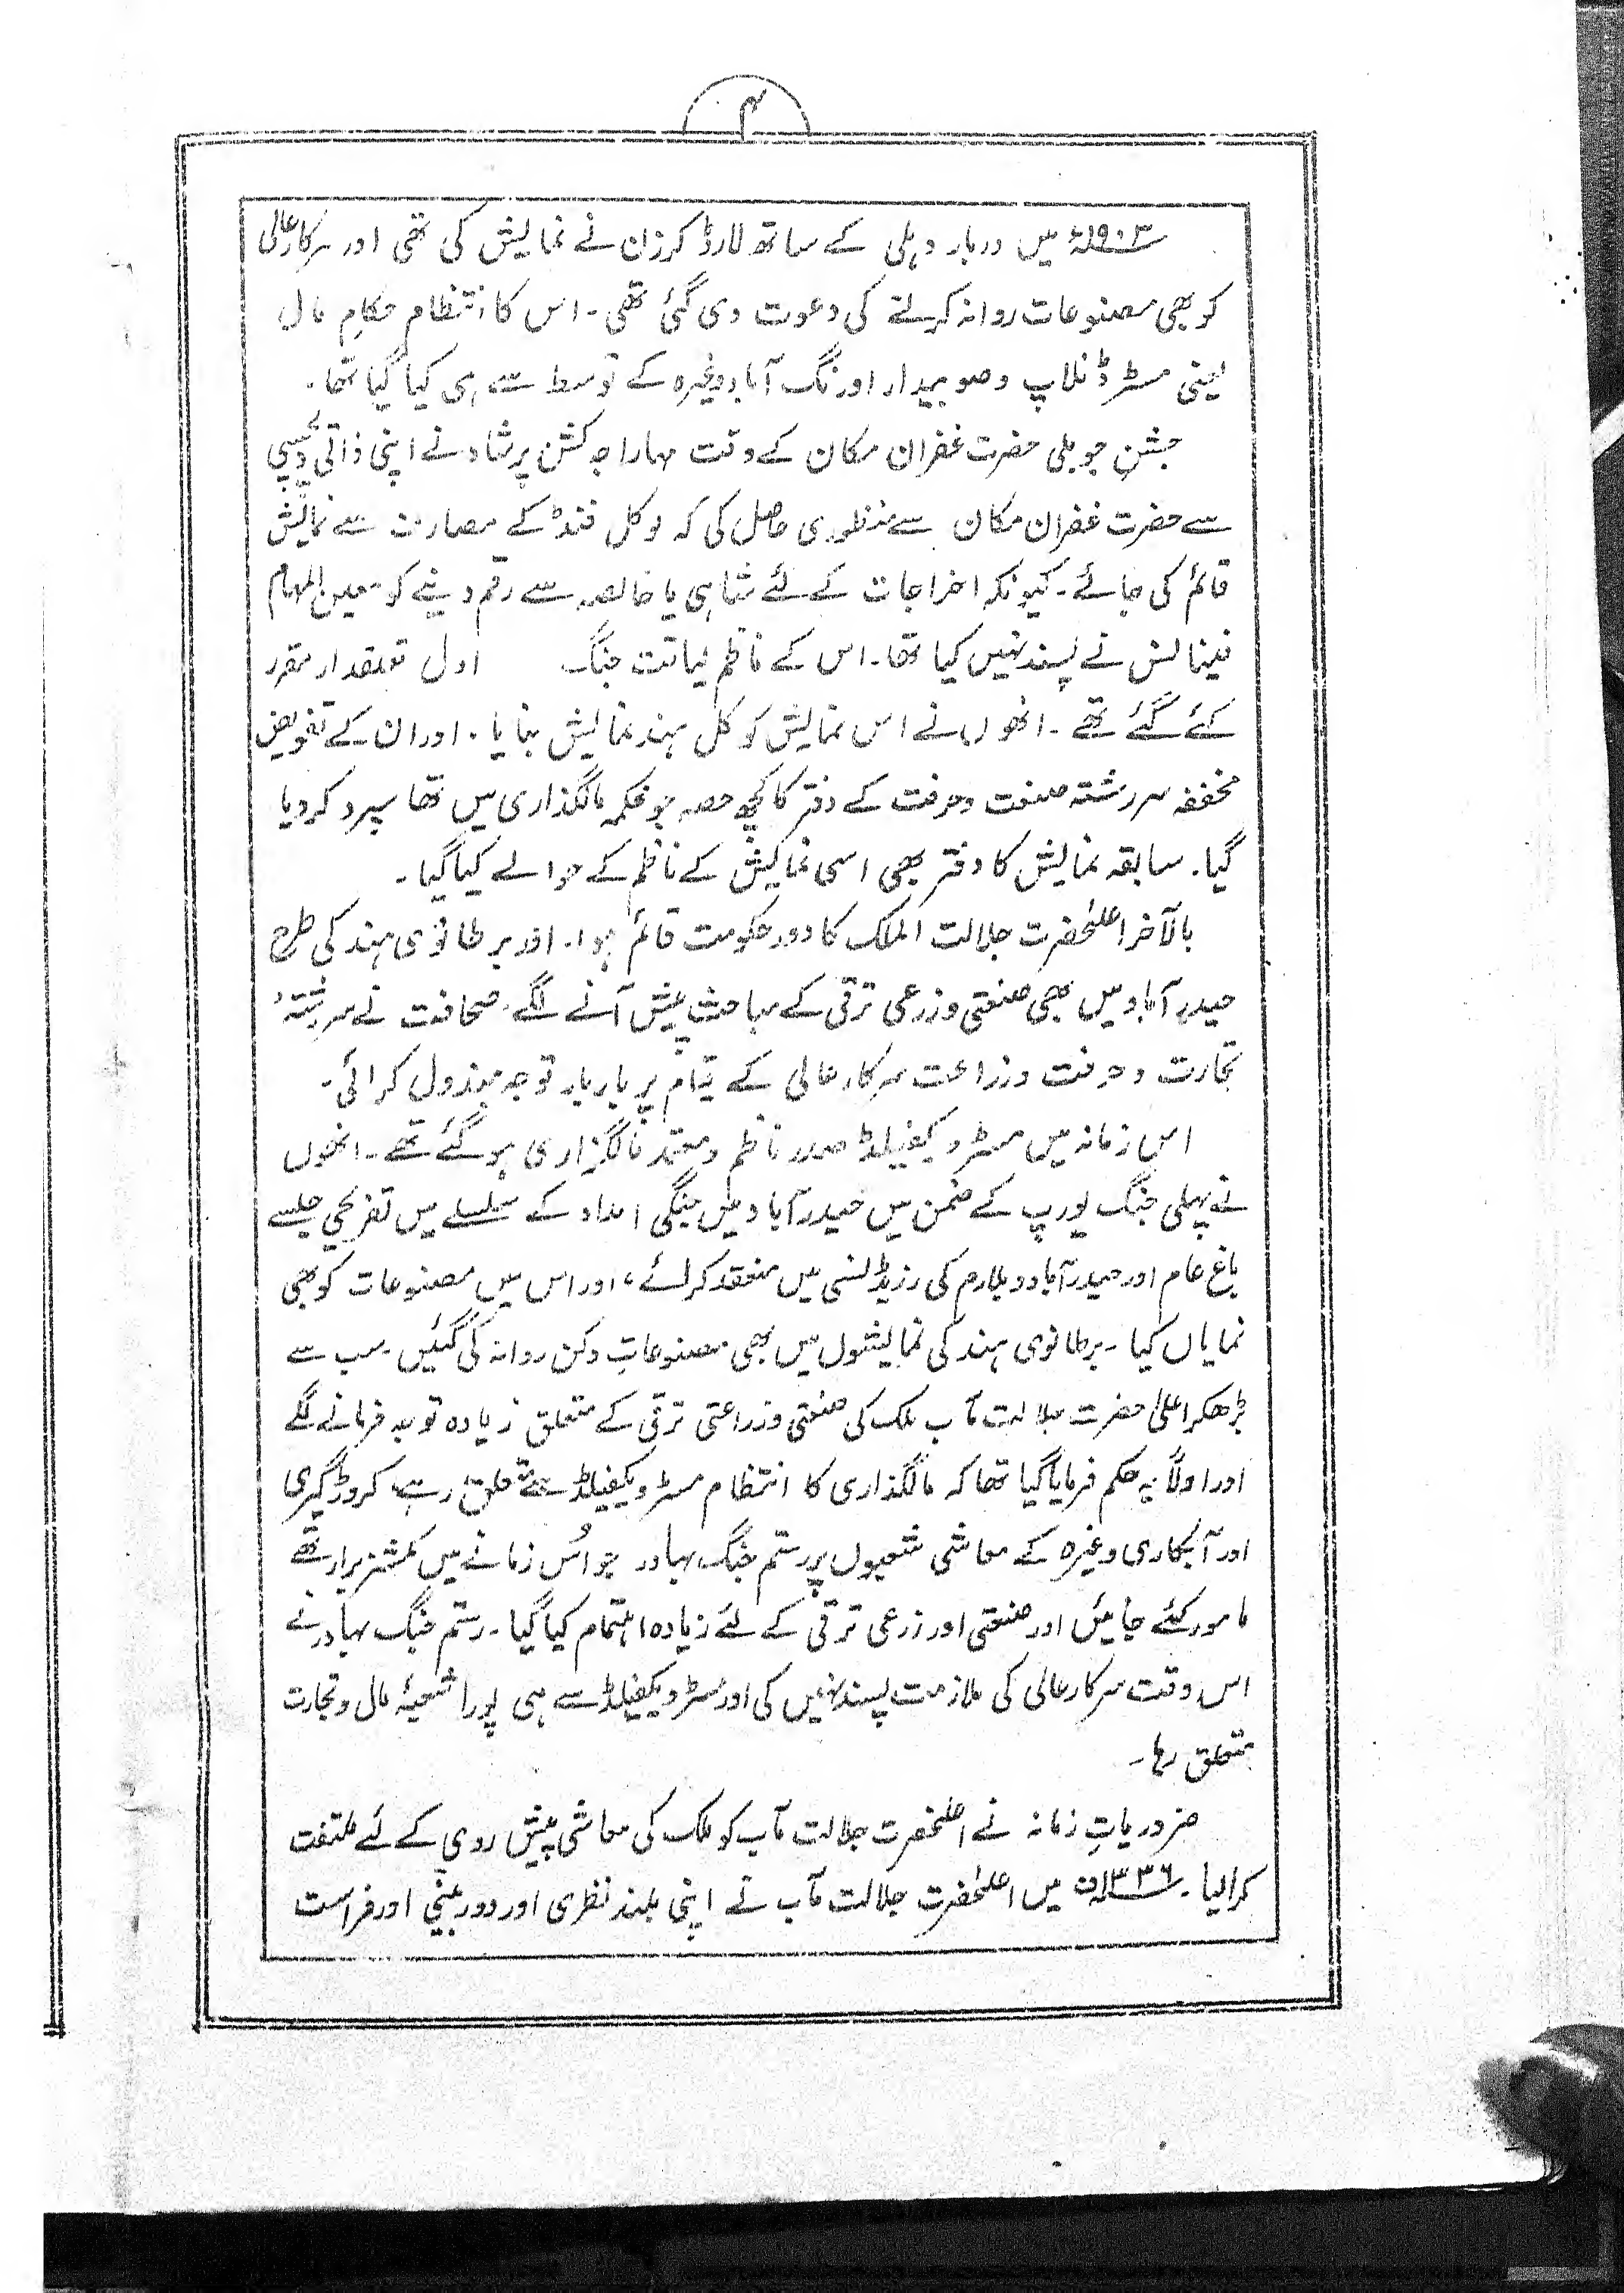 ۴
۱۹۰۳ء میں دربار دہلی کے ساتھ لارڈ کرزن نے نمایش کی تھی اور سرکارعالی
کو بھی مصنوعات روانہ کرنے کی دعوت دی گئی تھی۔ اس کا انتظام حکامِ مال
یعنی مسٹر ڈنلاپ و صوبیدار اورنگ آباد وغیرہ کے توسط سے ہی کیا گیا تھا۔
جشنِ جوبلی حضرت غفران مکان کے وقت مہاراجہ کشن پرشاد نے اپنی ذاتی دلچسپی
سے حضرت غفران مکان سے منظوری حاصل کی کہ لوکل فنڈ کے مصارف سے نمایش
قائم کی جائے۔ کیونکہ اخراجات کے لئے شاہی یا خالصہ سے رقم دینے کو معین المہام
فینانس نے پسند نہیں کیا تھا۔ اس کے ناظم لیاقت جنگ اول تعلقدار مقرر
کئے گئے تھے۔ انھوں نے اس نمایش کو کل ہند نمایش بنایا۔ اور ان کے تفویض
مخففہ سررشتہ صنعت وحرفت کے دفتر کا کچھ حصہ جو محکمہ مالگذاری میں تھا سپرد کردیا
گیا۔ سابقہ نمایش کا دفتر بھی اسی نمایش کے ناظم کے حوالے کیا گیا۔
بالآخر اعلٰحضرت جلالت الملک کا دور حکومت قائم ہوا۔ اور برطانوی ہند کی طرح
حیدرآباد میں بھی صنعتی وزرعی ترقی کے مباحث پیش آنے لگے۔ صحافت نے سررشتۂ
تجارت و حرفت وزراعت سرکارعالی کے قیام پر بار بار توجہ مبذول کرائی۔
اس زمانہ میں مسٹر ویکفیلڈ صدر ناظم و معتمد مالگزاری ہوگئے تھے۔ انھوں
نے پہلی جنگ یورپ کے ضمن میں حیدرآباد میں جنگی امداد کے سلسلے میں تفریحی جلسے
باغ عام اور حیدرآباد و بلارم کی رزیڈنسی میں منعقد کرائے، اور اس میں مصنوعات کو بھی
نمایاں کیا۔ برطانوی ہند کی نمایشوں میں بھی مصنوعاتِ دکن روانہ کی گئیں۔ سب سے
بڑھکر اعلٰی حضرت جلالت مآب ملک کی صنعتی وزراعتی ترقی کے متعلق زیادہ توجہ فرمانے لگے
اور اولاً یہ حکم فرمایا گیا تھا کہ مالگذاری کا انتظام مسٹر ویکفیلڈ سے متعلق رہے، کروڑگیری
اور آبکاری وغیرہ کے معاشی شعبوں پر رستم جنگ بہادر جو اُس زمانے میں کمشنر برار تھے
مامور کئے جائیں اور صنعتی اور زرعی ترقی کے لئے زیادہ اہتمام کیا گیا۔ رستم جنگ بہادر نے
اس وقت سرکارعالی کی ملازمت پسند نہیں کی اور مسٹر ویکفیلڈ سے ہی پورا شعبۂ مال و تجارت
متعلق رہا۔
ضروریاتِ زمانہ نے اعلٰحضرت جلالت مآب کو ملک کی معاشی پیش روی کے لئے ملتفت
کرالیا۔ ۱۳۳۶ھ میں اعلٰحضرت جلالت مآب نے اپنی بلند نظری اور دوربینی اور فراست